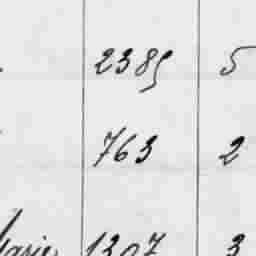 2385 5
763 2
Marie 1307 3